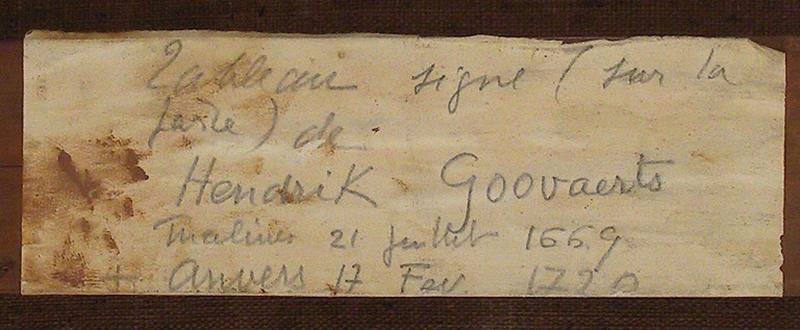 Tableau signé (sur la
) de
Hendrik Goovaerts
Malines 21 juillet 1669
+ Anvers 17 Fev. 1720